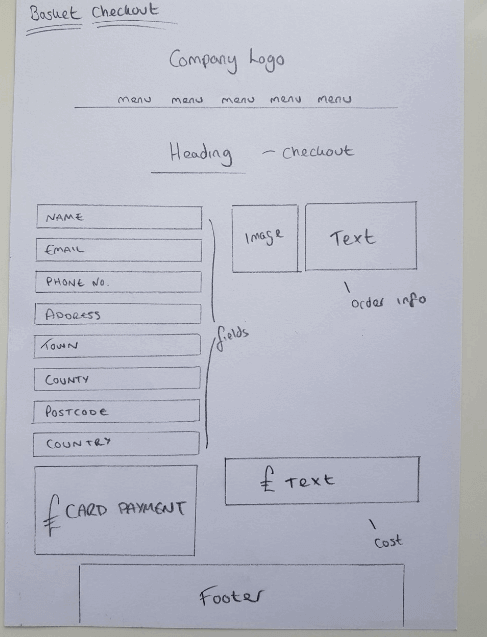 Basket Checkout
Company Logo
menu menu menu menu menu
Heading - Checkout
NAME
EMAIL
PHONE NO.
ADDRESS
TOWN
COUNTY
POSTCODE
COUNTRY
fields
Image
Text
order info
£ CARD PAYMENT
£ Text
cost
Footer